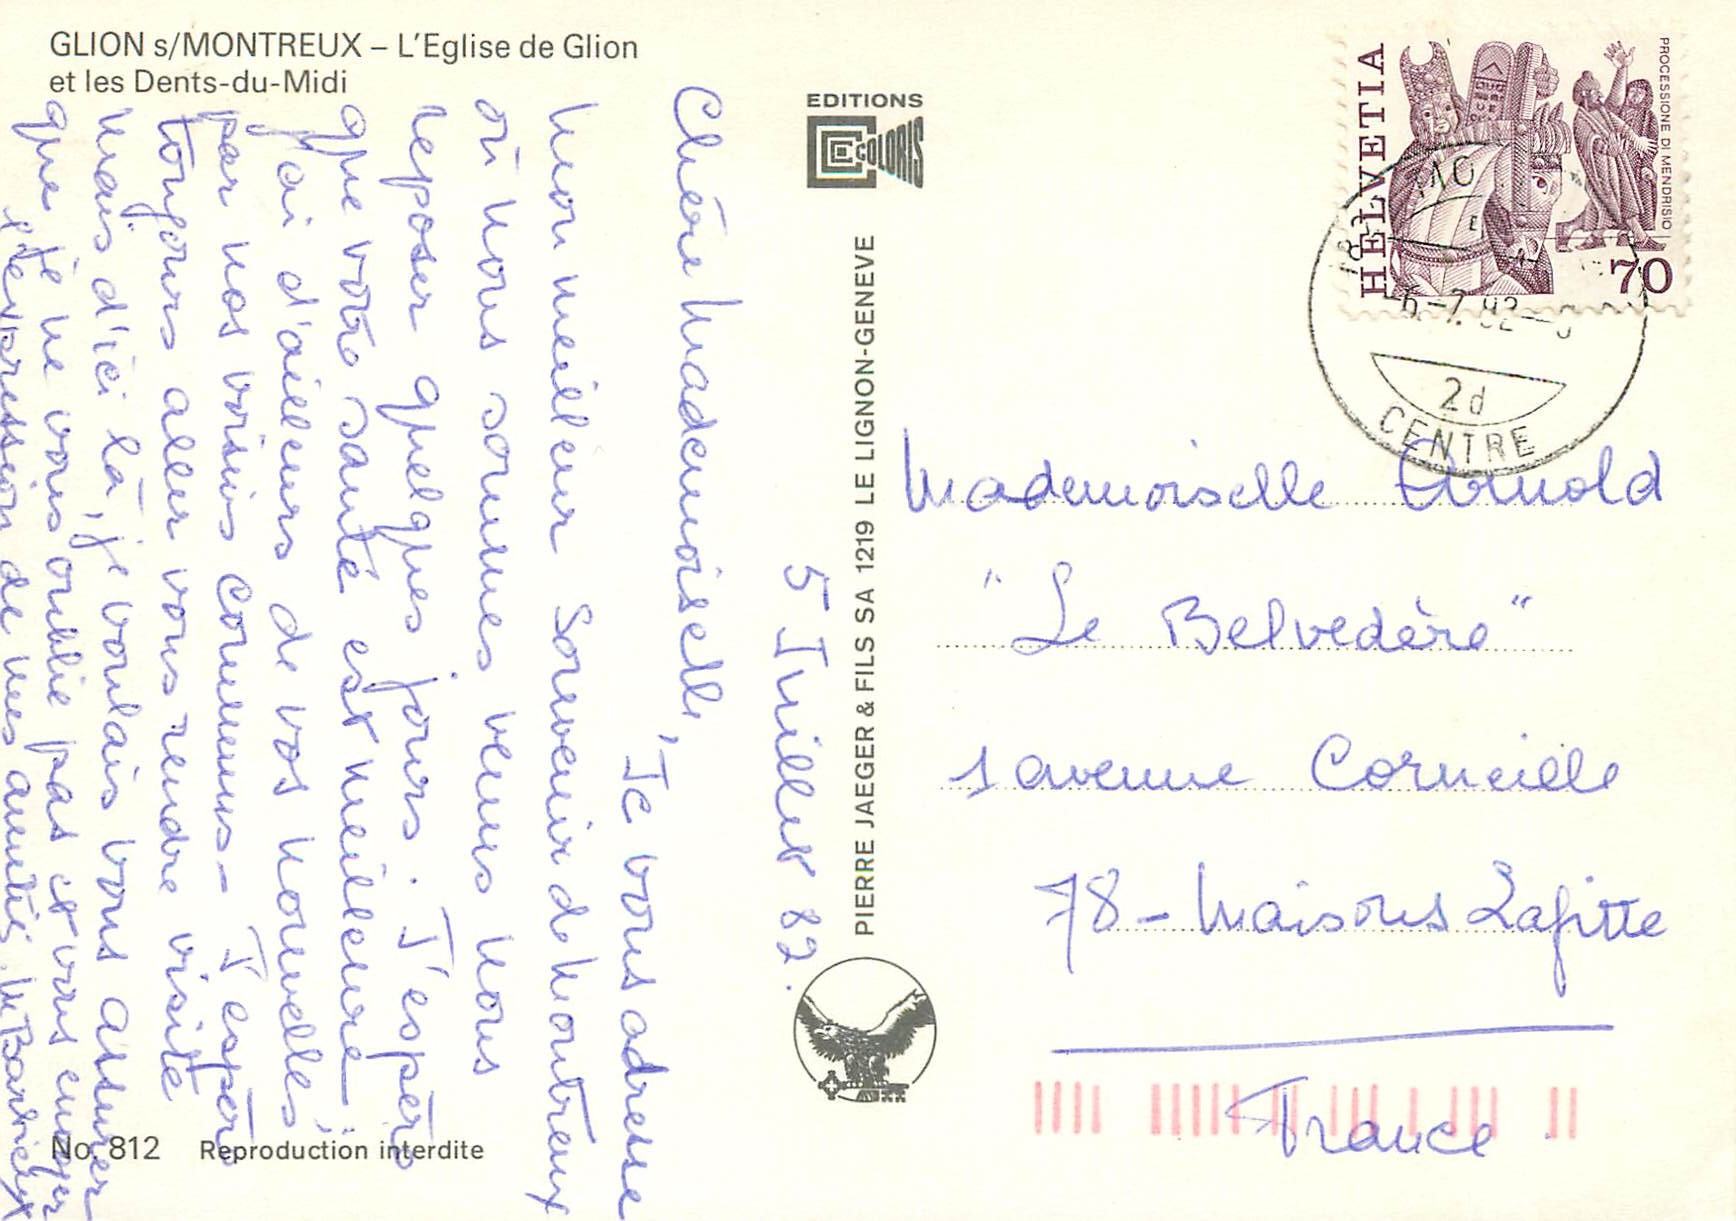 GLION s/MONTREUX – L'Eglise de Glion
et les Dents-du-Midi
EDITIONS
COLORIS
PIERRE JAEGER & FILS SA 1219 LE LIGNON-GENEVE
HELVETIA
PROCESSIONE DI MENDRISIO
70
-6-7.82--
2d
CENTRE
5 Juillet 82.
Chère Mademoiselle,
Je vous adresse
mon meilleur souvenir de Montreux
où nous sommes venus nous
reposer quelques jours. J'espère
que votre santé est meilleure;
j'ai d'ailleurs de vos nouvelles
par nos voisins communs - J'espère
toujours aller vous rendre visite
mais d'ici là, je voulais vous assurer
que je ne vous oublie pas et vous envoyer
l'expression de mes amitiés.
Mademoiselle Arnold
"Le Belvedère"
1 avenue Corneille
78 - Maisons Lafitte
France
No. 812 Reproduction interdite